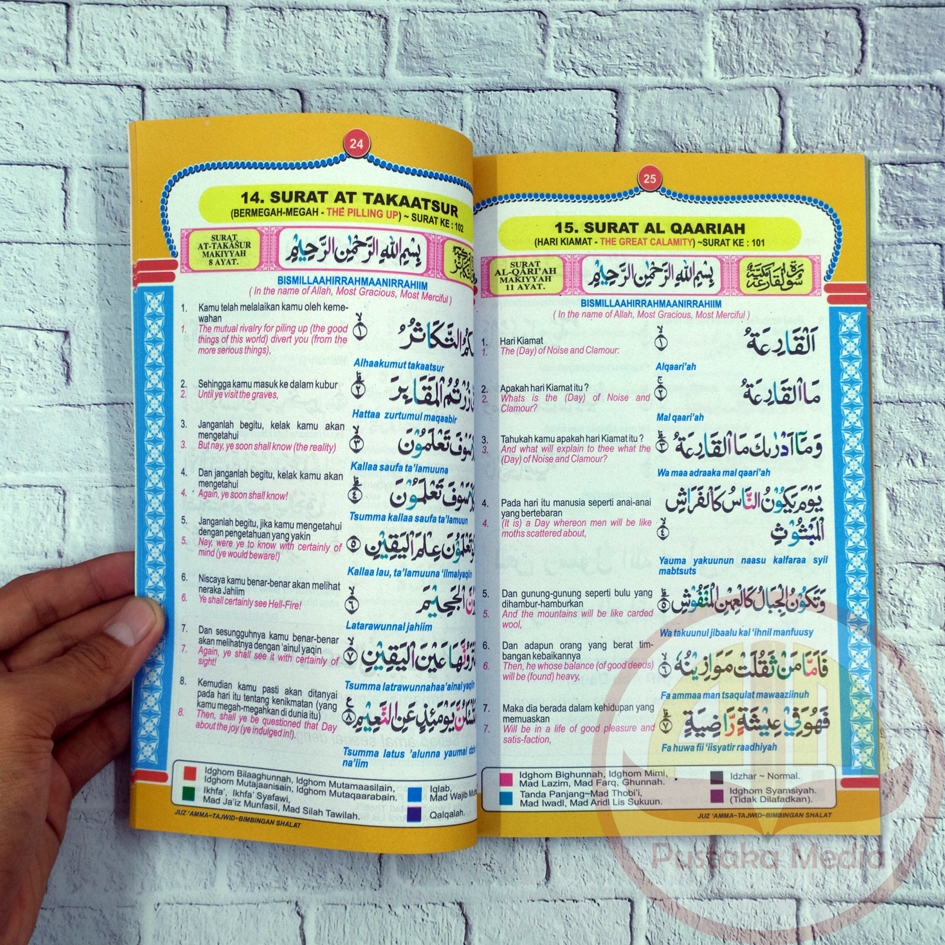 24
14. SURAT AT TAKAATSUR
(BERMEGAH-MEGAH - THE PILLING UP) ~ SURAT KE : 102
SURAT
AT-TAKAŠUR
MAKIYYAH
8 AYAT.
بِسْمِ اللهِ الرَّحْمٰنِ الرَّحِيْمِ
BISMILLAAHIRRAHMAANIRRAHIIM
( In the name of Allah, Most Gracious, Most Merciful )
1. Kamu telah melalaikan kamu oleh keme-
wahan
1. The mutual rivalry for piling up (the good
things of this world) divert you (from the
more serious things),
التَّكَاثُرُ
Alhaakumut takaatsur
2. Sehingga kamu masuk ke dalam kubur
2. Until ye visit the graves,
زُرْتُمُ الْمَقَابِرَ
Hattaa zurtumul maqaabir
3. Janganlah begitu, kelak kamu akan
mengetahui
3. But nay, ye soon shall know (the reality)
سَوْفَ تَعْلَمُوْنَ
Kallaa saufa ta'lamuuna
4. Dan janganlah begitu, kelak kamu akan
mengetahui
4. Again, ye soon shall know!
سَوْفَ تَعْلَمُوْنَ
Tsumma kallaa saufa ta'lamun
5. Janganlah begitu, jika kamu mengetahui
dengan pengetahuan yang yakin
5. Nay, were ye to know with certainly of
mind (ye would beware!)
تَعْلَمُوْنَ عِلْمَ الْيَقِيْنِ
Kallaa lau, ta'lamuuna 'ilmalyaqin
6. Niscaya kamu benar-benar akan melihat
neraka Jahiim
6. Ye shall certainly see Hell-Fire!
الْجَحِيْمَ
Latarawunnal jahiim
7. Dan sesungguhnya kamu benar-benar
akan melihatnya dengan 'ainul yaqin
7. Again, ye shall see it with certainly of
sight!
عَيْنَ الْيَقِيْنِ
Tsumma latrawunnahaa'ainal yaqin
8. Kemudian kamu pasti akan ditanyai
pada hari itu tentang kenikmatan (yang
kamu megah-megahkan di dunia itu)
8. Then, shall ye be questioned that Day
about the joy (ye indulged in!).
يَوْمَئِذٍ عَنِ النَّعِيْمِ
Tsumma latus 'alunna yaumai
na'iim
Idghom Bilaaghunnah, Idghom Mutamaasilain,
Idghom Mutajaanisain, Idghom Mutaqaarabain.
Ikhfa', Ikhfa' Syafawi,
Mad Ja'iz Munfasil, Mad Silah Tawilah.
Iqlab,
Mad Wajib
Qalqalah.
JUZ 'AMMA~TAJWID~BIMBINGAN SHALAT
25
15. SURAT AL QAARIAH
(HARI KIAMAT - THE GREAT CALAMITY) ~SURAT KE : 101
SURAT
AL-QARI'AH
MAKIYYAH
11 AYAT.
بِسْمِ اللهِ الرَّحْمٰنِ الرَّحِيْمِ
BISMILLAAHIRRAHMAANIRRAHIIM
( In the name of Allah, Most Gracious, Most Merciful )
1. Hari Kiamat
1. The (Day) of Noise and Clamour:
اَلْقَارِعَةُ
Alqaari'ah
2. Apakah hari Kiamat itu ?
2. Whats is the (Day) of Noise and
Clamour?
مَا الْقَارِعَةُ
Mal qaari'ah
3. Tahukah kamu apakah hari Kiamat itu ?
3. And what will explain to thee what the
(Day) of Noise and Clamour?
وَمَآ اَدْرٰىكَ مَا الْقَارِعَةُ
Wa maa adraaka mal qaari'ah
4. Pada hari itu manusia seperti anai-anai
yang bertebaran
4. (It is) a Day whereon men will be like
moths scattered about,
يَوْمَ يَكُوْنُ النَّاسُ كَالْفَرَاشِ
الْمَبْثُوْثِ
Yauma yakuunun naasu kalfaraa syil
mabtsuts
5. Dan gunung-gunung seperti bulu yang
dihambur-hamburkan
5. And the mountains will be like carded
wool,
وَتَكُوْنُ الْجِبَالُ كَالْعِهْنِ الْمَنْفُوْشِ
Wa takuunul jibaalu kal 'ihnil manfuusy
6. Dan adapun orang yang berat tim-
bangan kebaikannya
6. Then, he whose balance (of good deeds)
will be (found) heavy,
فَاَمَّا مَنْ ثَقُلَتْ مَوَازِيْنُهُ
Fa ammaa man tsaqulat mawaaziinuh
7. Maka dia berada dalam kehidupan yang
memuaskan
7. Will be in a life of good pleasure and
satis-faction,
فَهُوَ فِيْ عِيْشَةٍ رَّاضِيَةٍ
Fa huwa fii 'iisyatir raadhiyah
Idghom Bighunnah, Idghom Mimi,
Mad Lazim, Mad Farq, Ghunnah.
Tanda Panjang~Mad Thobi'i,
Mad Iwadl, Mad Aridl Lis Sukuun.
Idzhar ~ Normal.
Idghom Syamsiyah.
(Tidak Dilafadkan).
JUZ 'AMMA~TAJWID~BIMBINGAN SHALAT
Pustaka Media